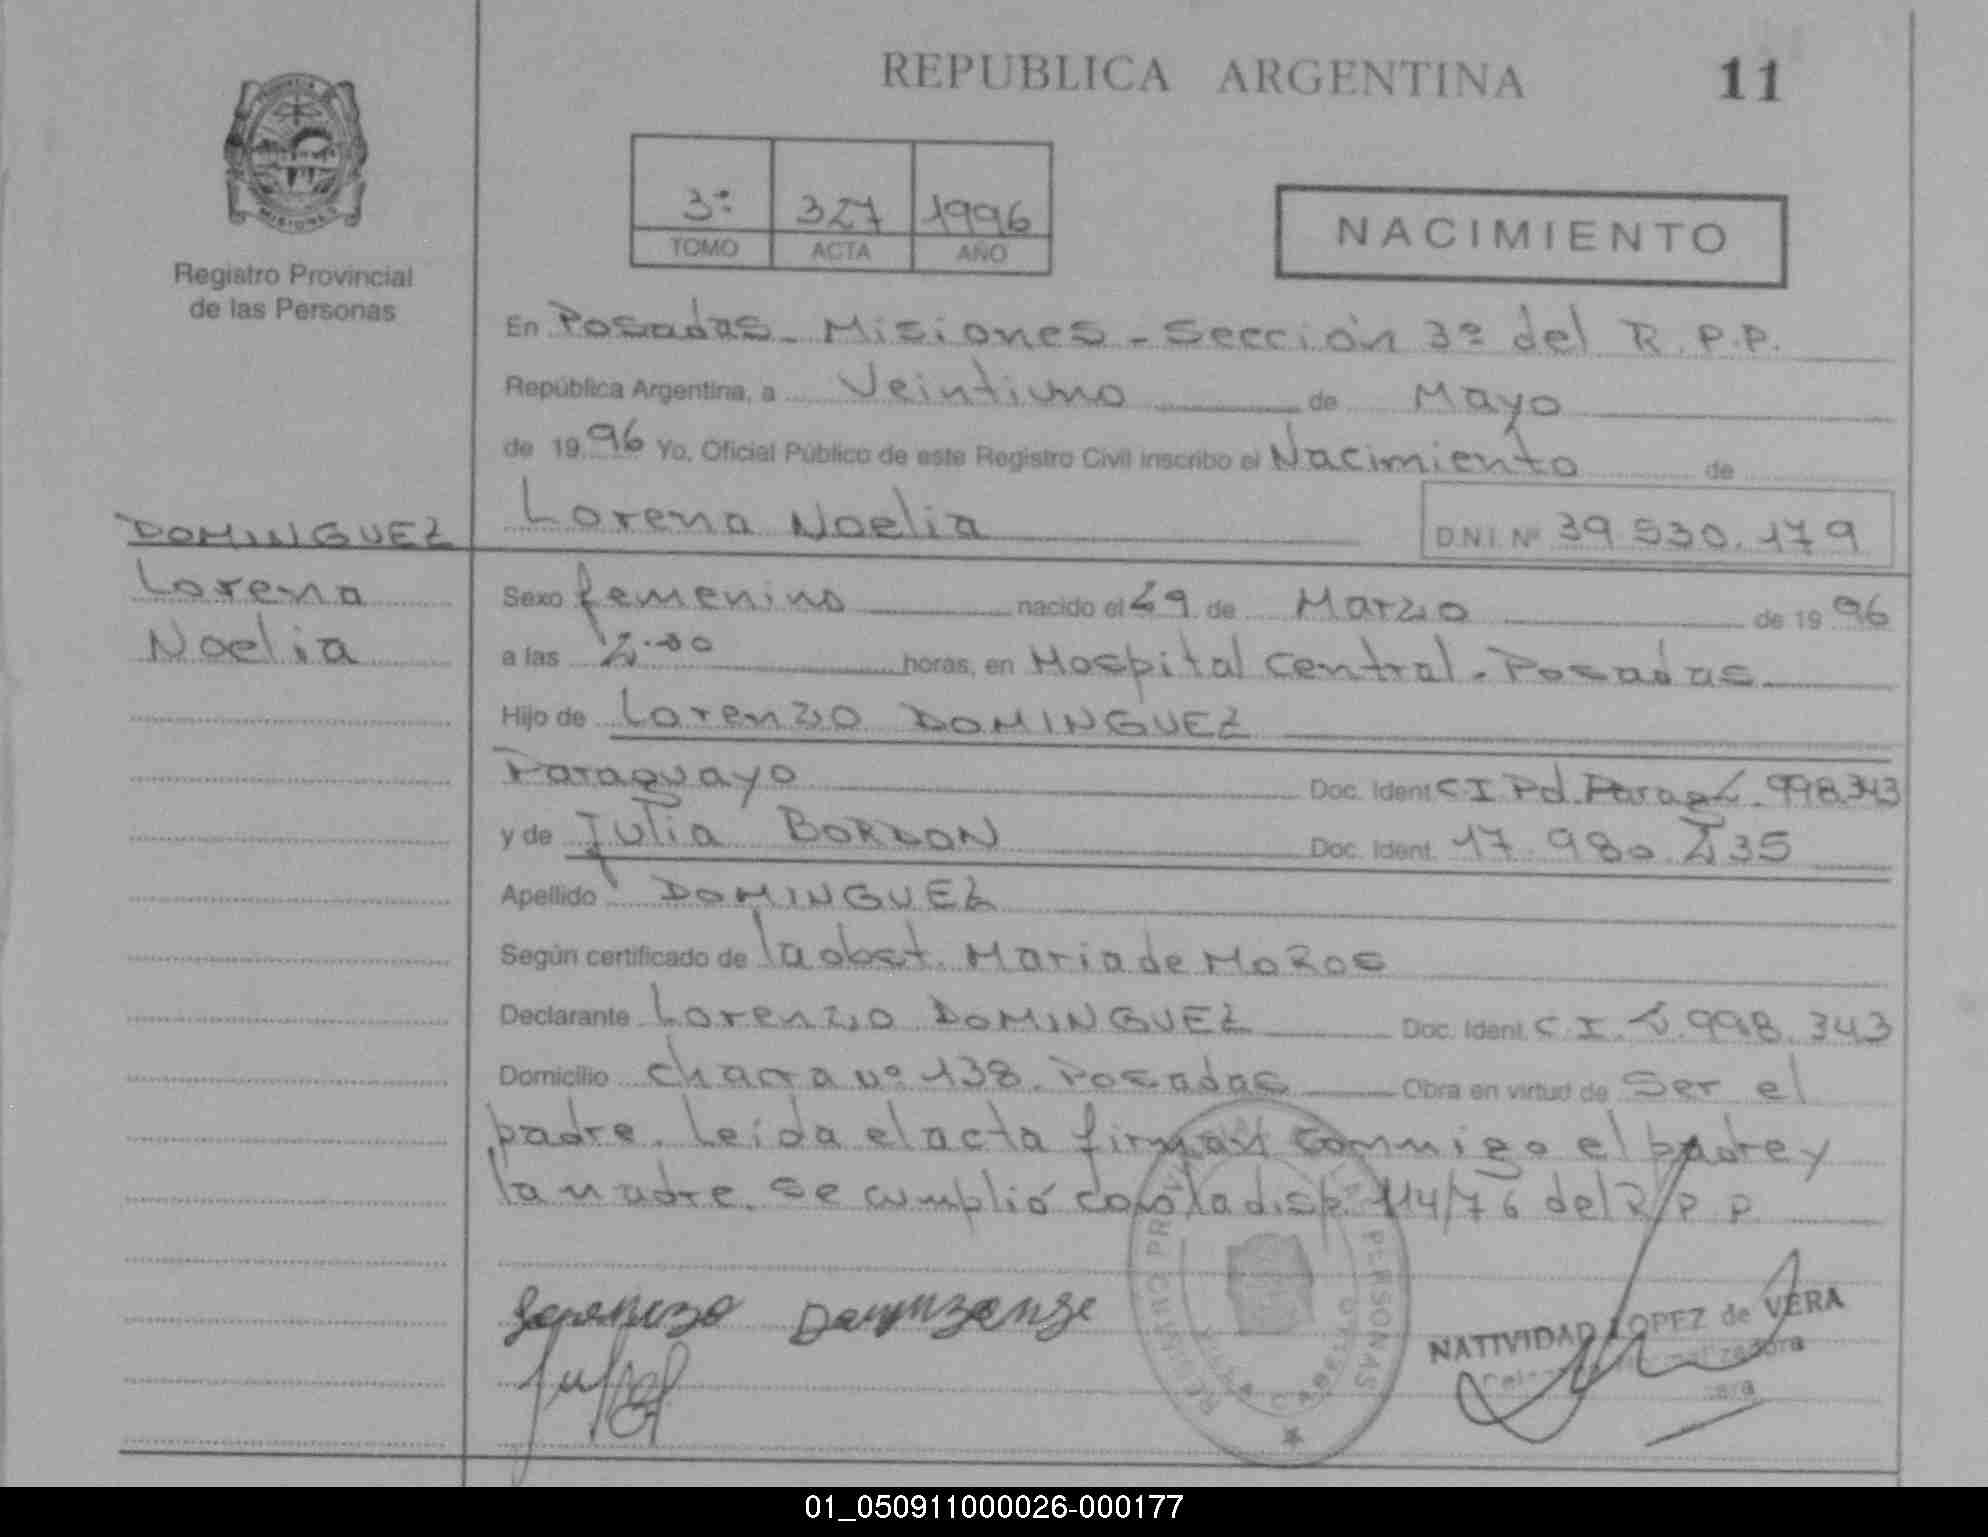 REPUBLICA ARGENTINA 11
MISIONES
Registro Provincial
de las Personas
3º 327 1996
TOMO ACTA AÑO
NACIMIENTO
En Posadas - Misiones - Sección 3º del R.P.P.
República Argentina, a Veintiuno de Mayo
de 1996 Yo, Oficial Público de este Registro Civil inscribo el Nacimiento de
Lorena Noelia
D.N.I. Nº 39 530.179
DOMINGUEZ
Lorena
Noelia
Sexo femenino nacido el 29 de Marzo de 1996
a las 2.00 horas, en Hospital Central - Posadas
Hijo de Lorenzo DOMINGUEZ
Paraguayo Doc. Ident C I Pd. Parag 2.998.343
y de Julia BORDON Doc. Ident. 17.980.235
Apellido DOMINGUEZ
Según certificado de la obst. Maria de MOROS
Declarante Lorenzo DOMINGUEZ Doc. Ident. C.I. 2.998.343
Domicilio chacra nº 138. Posadas Obra en virtud de ser el
padre. Leída el acta firman conmigo el padre y
la madre. se cumplió con la disp. 114/76 del R.P.P.
NATTVIDAD LOPEZ de VERA
01_050911000026-000177